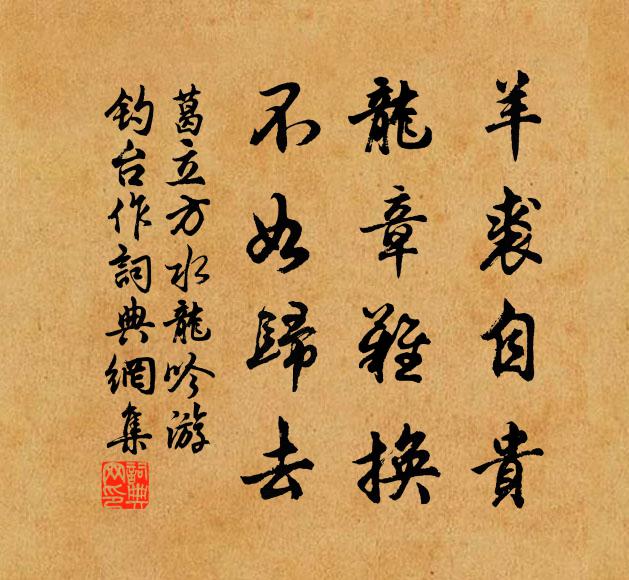 羊裘自貴
龍章難換
不如歸去
葛立方水龍吟游
釣台作詞典網集
詞典
网印